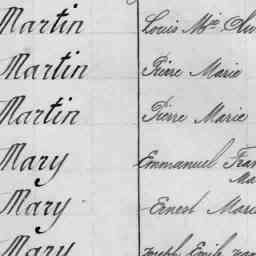 Martin Louis Mie
Martin Pierre Marie
Martin Pierre Marie
Mary Emmanuel Fran
Ma
Mary Ernest Marie
Mary Joseph Emile